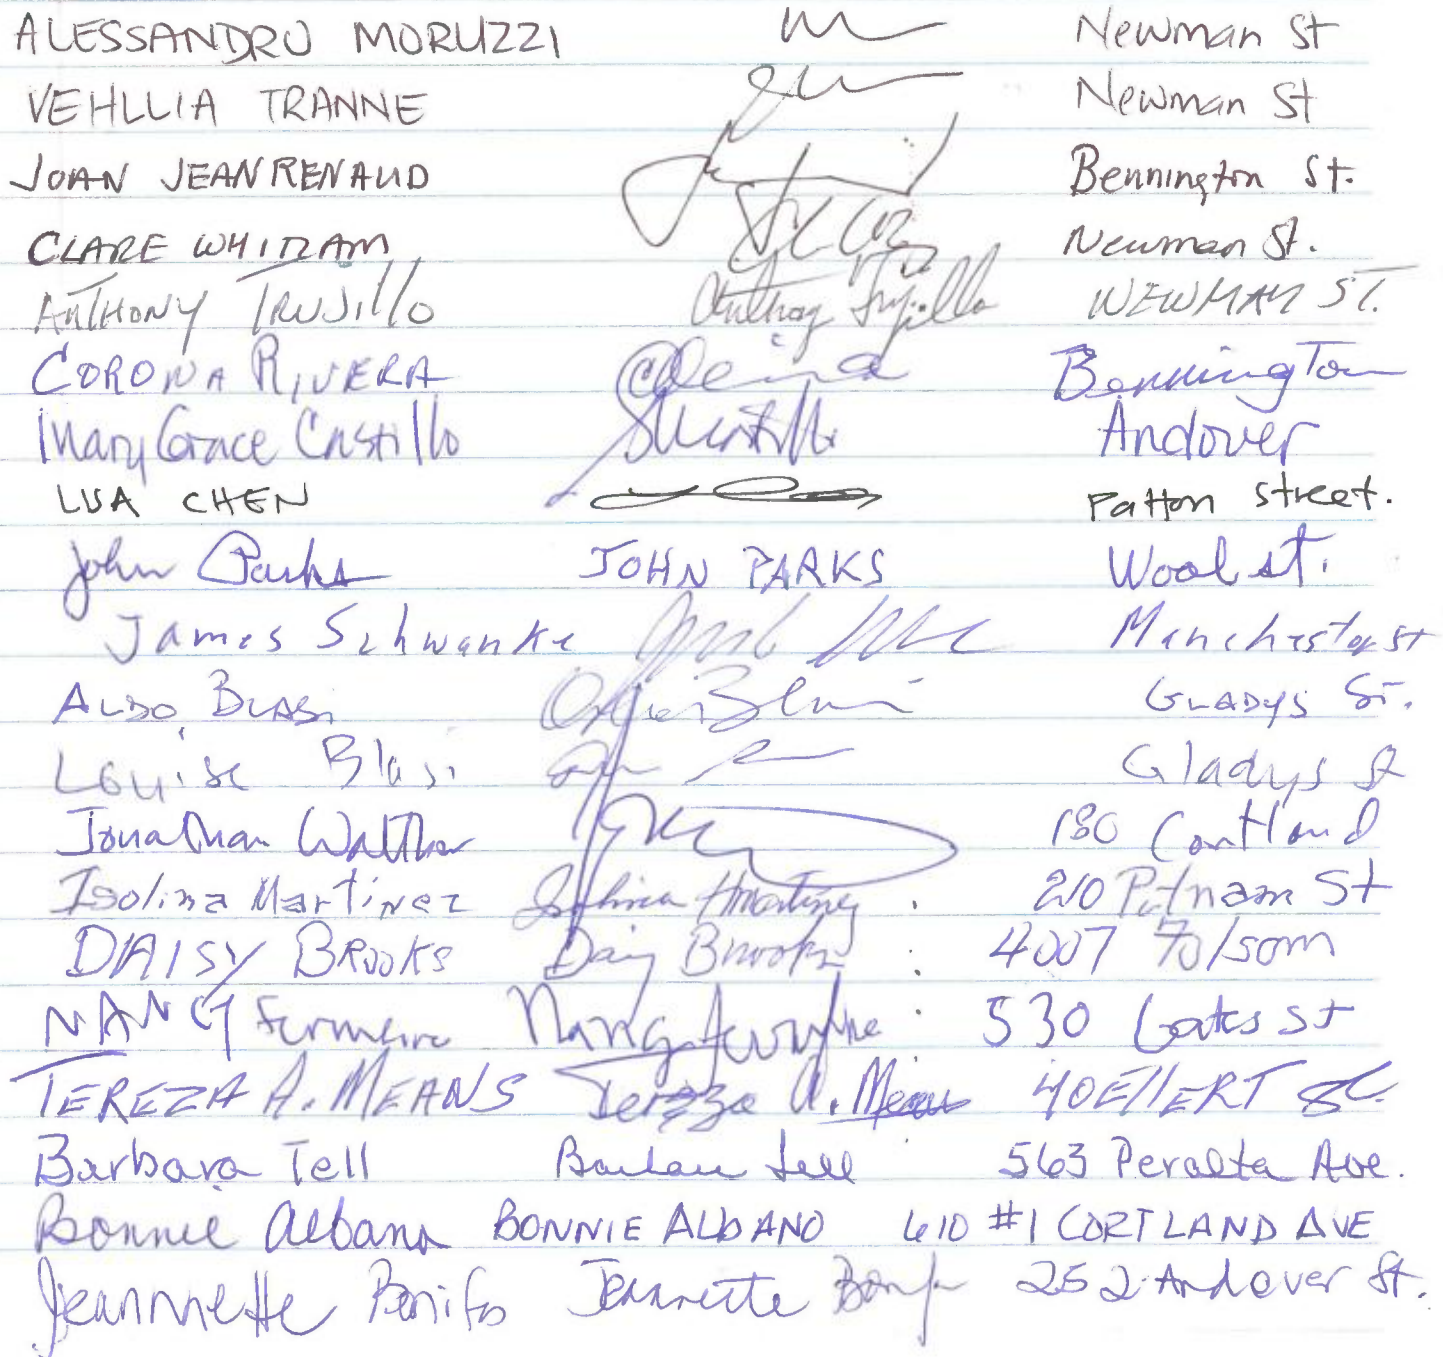 ALESSANDRO MORUZZI Newman St
VEHLLIA TRANNE Newman St
JOAN JEANRENAUD Bennington St.
CLARE WHITRAM Newman St.
ANTHONY TRUJILLO Anthony Trujillo NEWMAN ST.
CORONA RIVERA Bennington
Mary Grace Castillo Andover
LISA CHEN Patton Street.
John Parks JOHN PARKS Wool st.
James Schwanke Manchester St
ALDO BLASI GLADYS ST.
Louise Blasi Gladys St
Jonathan Walther 180 Cortland
Isolina Martinez Isolina Martinez 210 Putnam St
DAISY BROOKS Daisy Brooks 4007 Folsom
NANCY Nancy 530 Gates St
TEREZA A. MEANS Tereza A. Means 40 ELLERT St.
Barbara Tell Barbara Tell 563 Peralta Ave.
Bonnie Albano BONNIE ALBANO 610 #1 CORTLAND AVE
Jeannette Jeannette 252 Andover St.